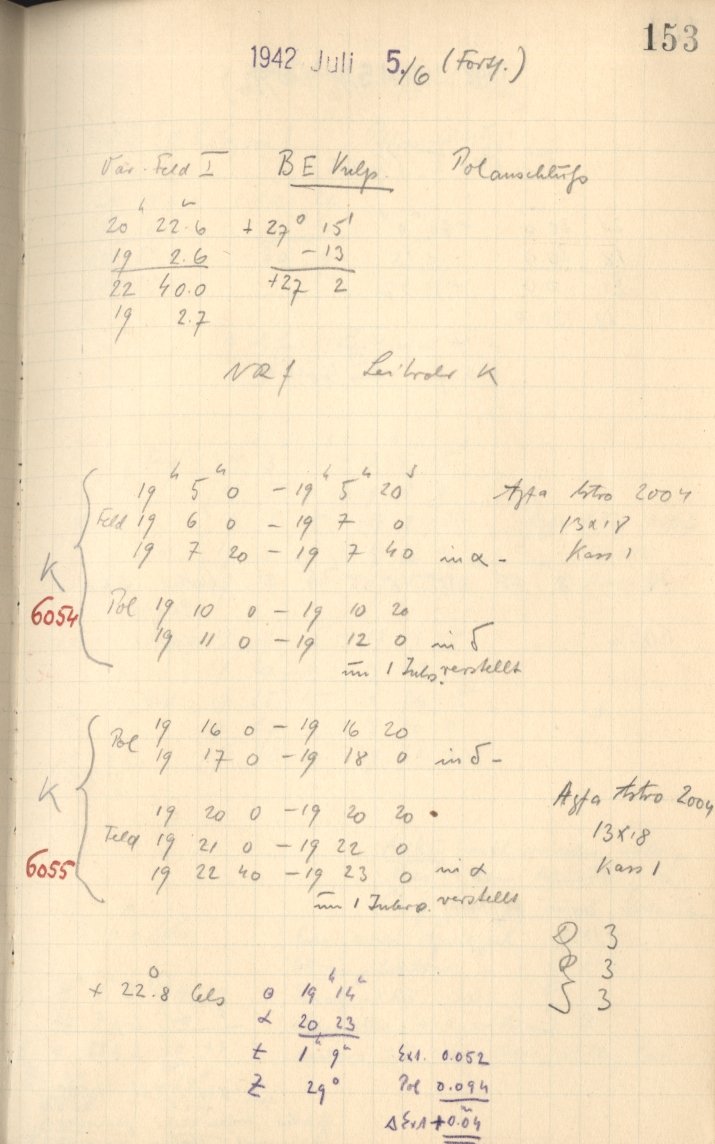 153
1942 Juli 5./6 (Forts.)
Var. Feld I BE Vulp. Polanschluß
20h 22m.6 + 27° 15'
19 2.6 - 13
22 40.0 +27 2
19 2.7
K
19h 5m 0 - 19h 5m 20s Agfa Astro 2004
Feld 19 6 0 - 19 7 0 13x18
19 7 20 - 19 7 40 in α - Kass 1
K
6054
Pol 19 10 0 - 19 10 20
19 11 0 - 19 12 0 in δ
um 1 verstellt
Pol 19 16 0 - 19 16 20
19 17 0 - 19 18 0 in δ -
K
19 20 0 - 19 20 20 Agfa Astro 2004
Feld 19 21 0 - 19 22 0 13x18
6055
19 22 40 - 19 23 0 in α Kass 1
um 1 verstellt
3
3
3
+ 22°.8 Cels θ 19h 14m
α 20 23
t 1h 9m Ext. 0.052
Z 29° Pol 0.094
Δ Ext +0m.04